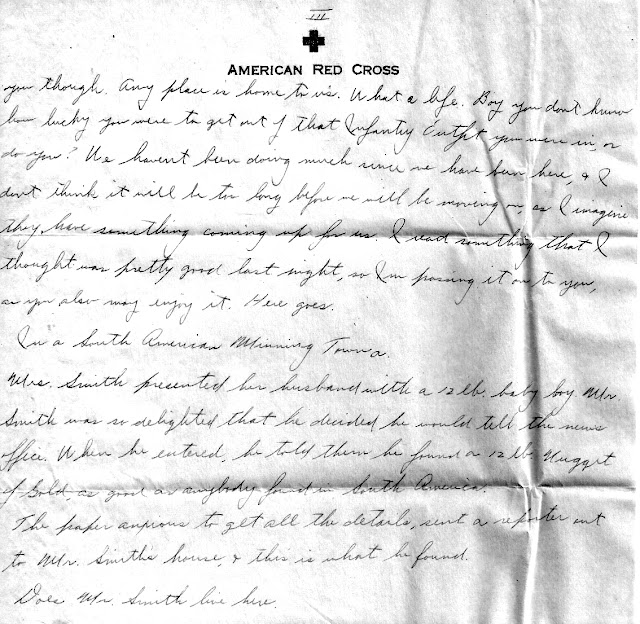 III
AMERICAN RED CROSS
you though. Any place is home to us. What a life. Boy you don't know
how lucky you were to get out of that Infantry Outfit you were in, or
do you? We haven't been doing much since we have been here, & I
don't think it will be too long before we will be moving on, as I imagine
they have something coming up for us. I read something that I
thought was pretty good last night, so I'm passing it on to you,
as you also may enjoy it. Here goes.
In a South American Minning Town a.
Mrs. Smith presented her husband with a 12 lb. baby boy Mr.
Smith was so delighted that he decided he would tell the news
office. When he entered, he told them he found a 12 lb. Nugget
of Gold, as good as anybody found in South America.
The paper anxious to get all the details, sent a reporter out
to Mr. Smith's house, & this is what he found.
Does Mr. Smith live here.